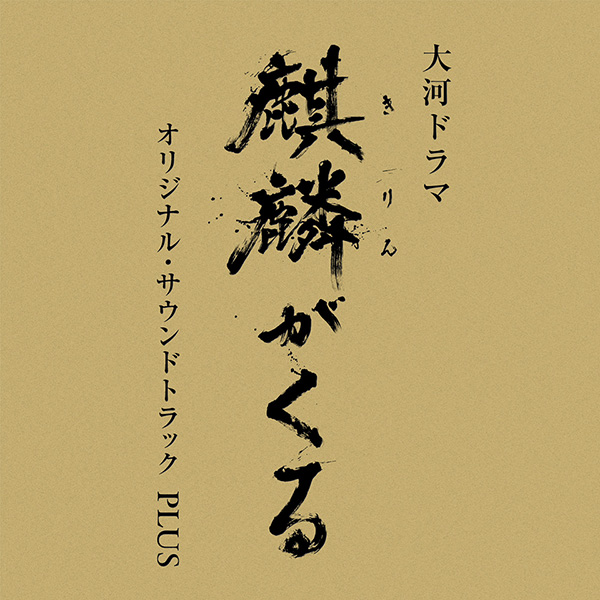 大河ドラマ
きりん
麒麟がくる
オリジナル・サウンドトラック PLUS